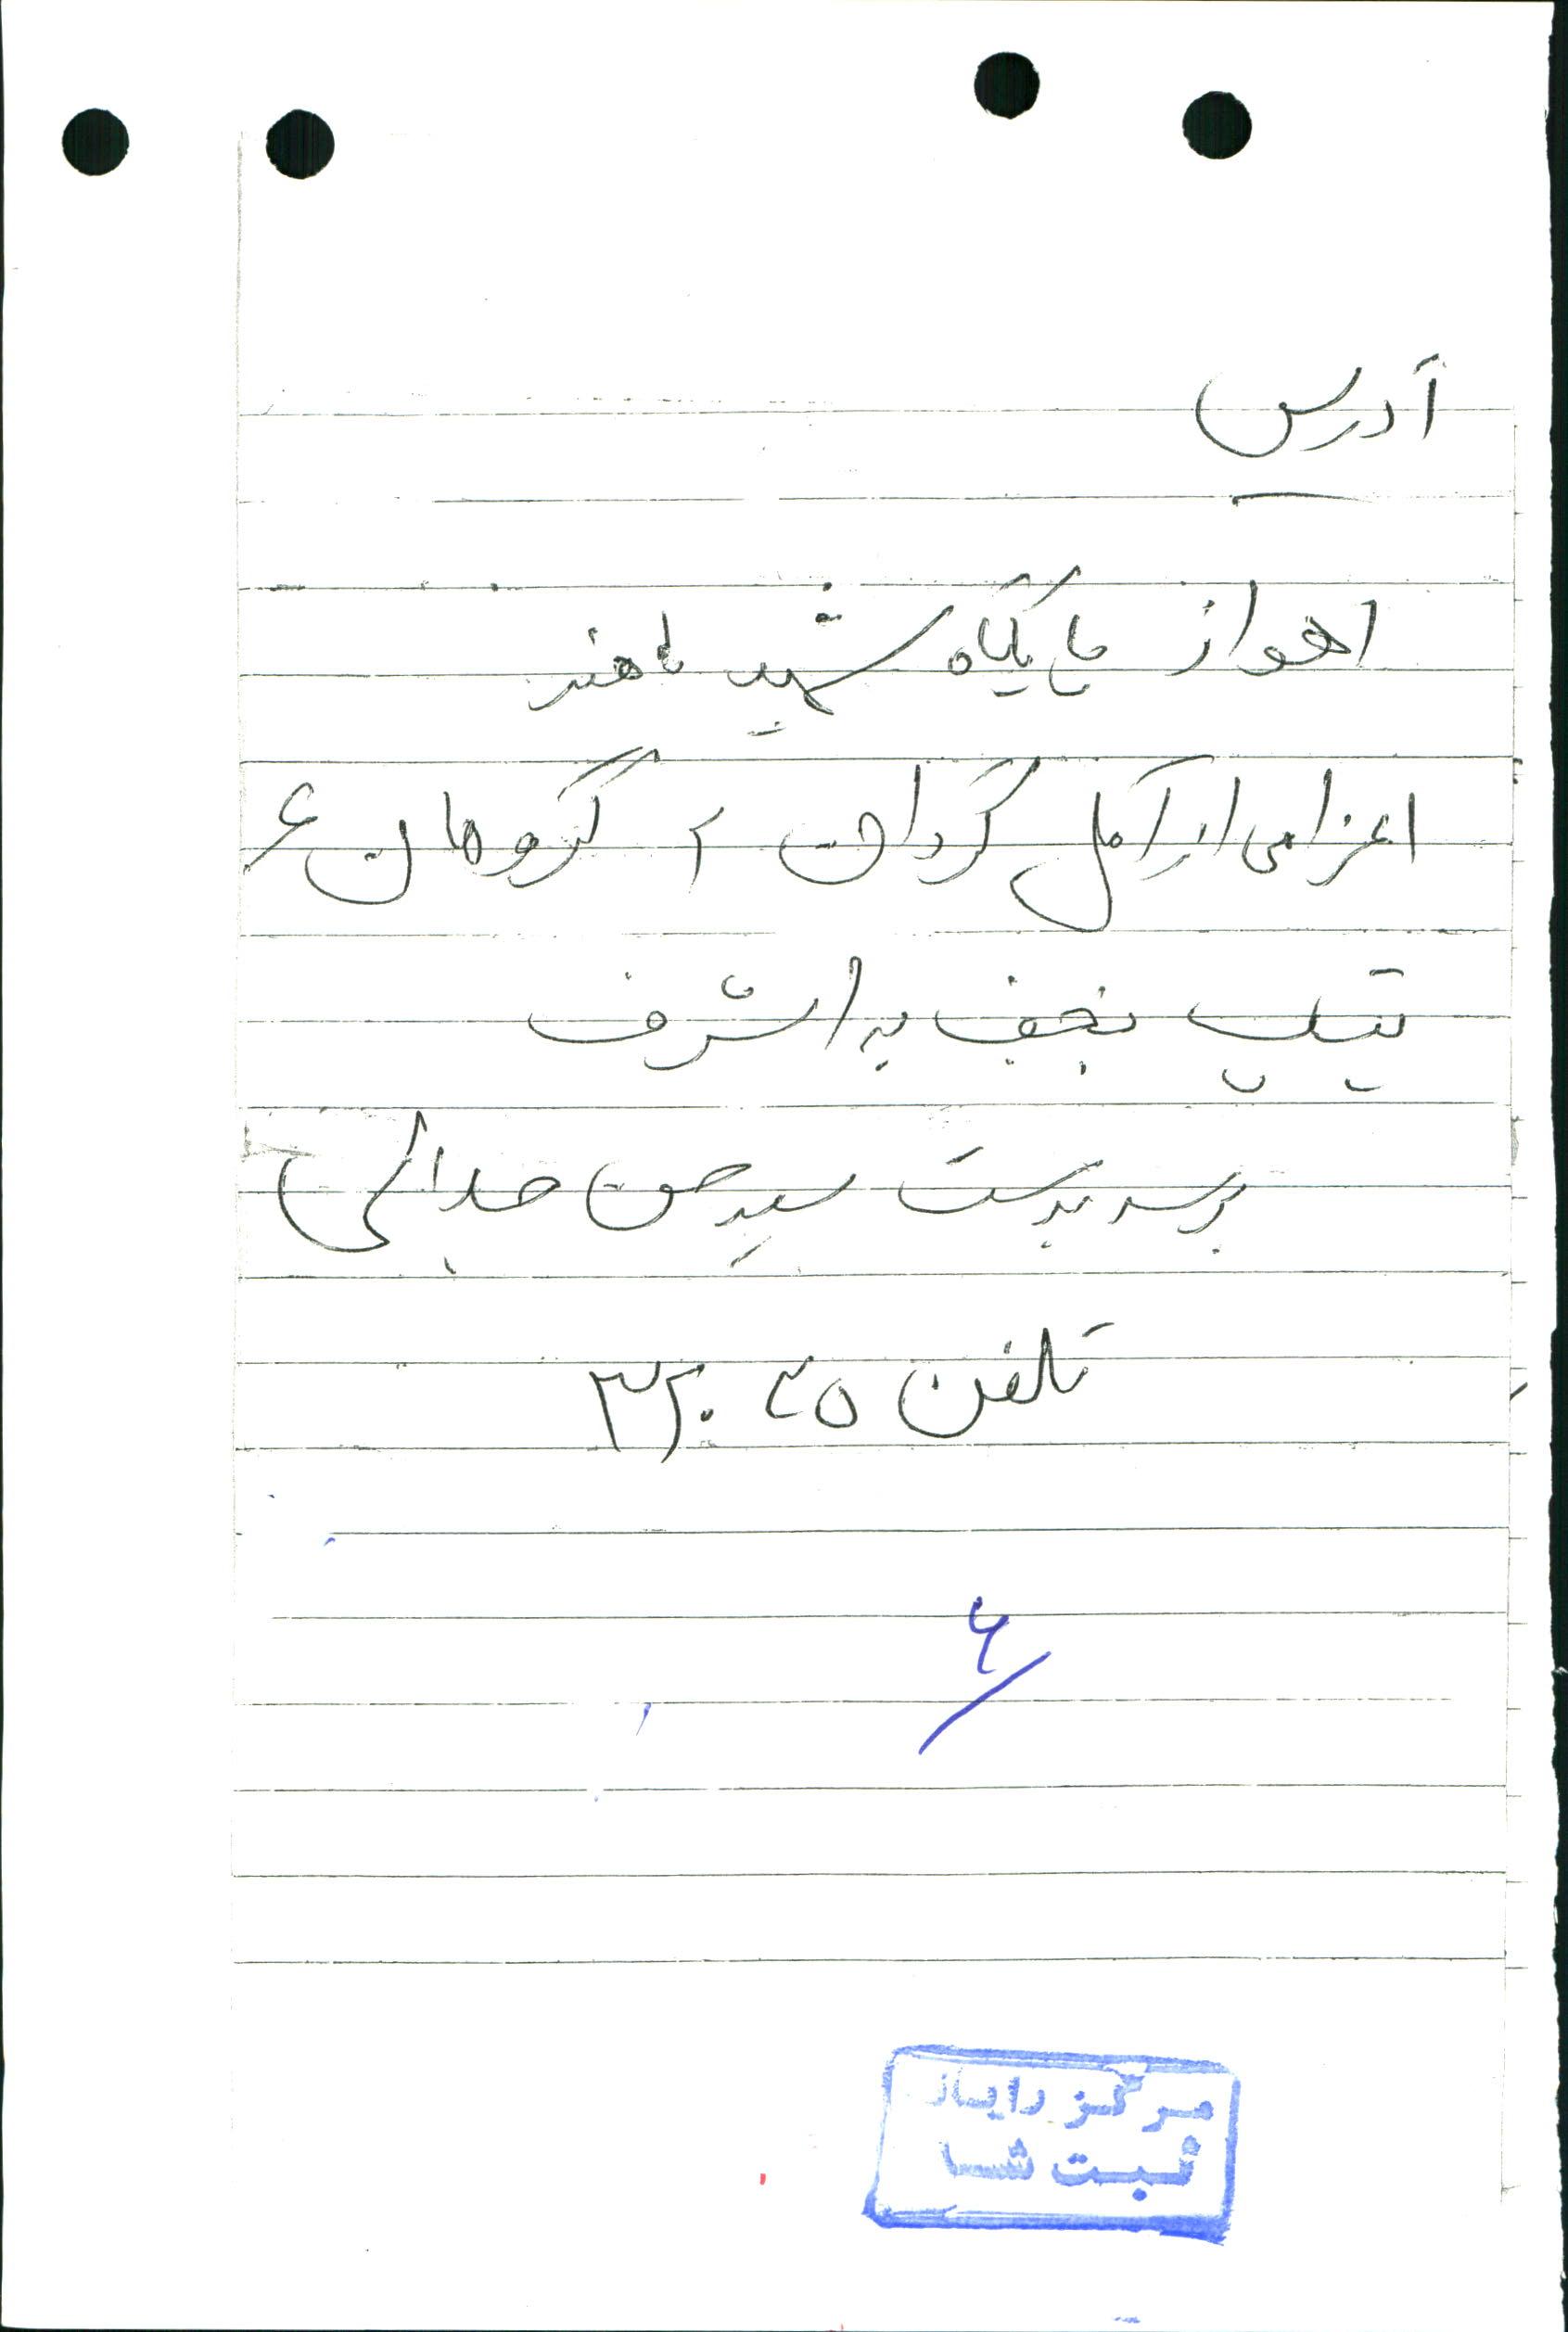 آدرس
اهواز پایگاه شهید باهنر
اعزامی از آمل گردان ۲ گروهان ۶
تیپ نجف یه اشرف
برسد بدست سید حسن جدائی
تلفن ۳۲۰۲۵
۶
مرکز رایاز
ثبت شد